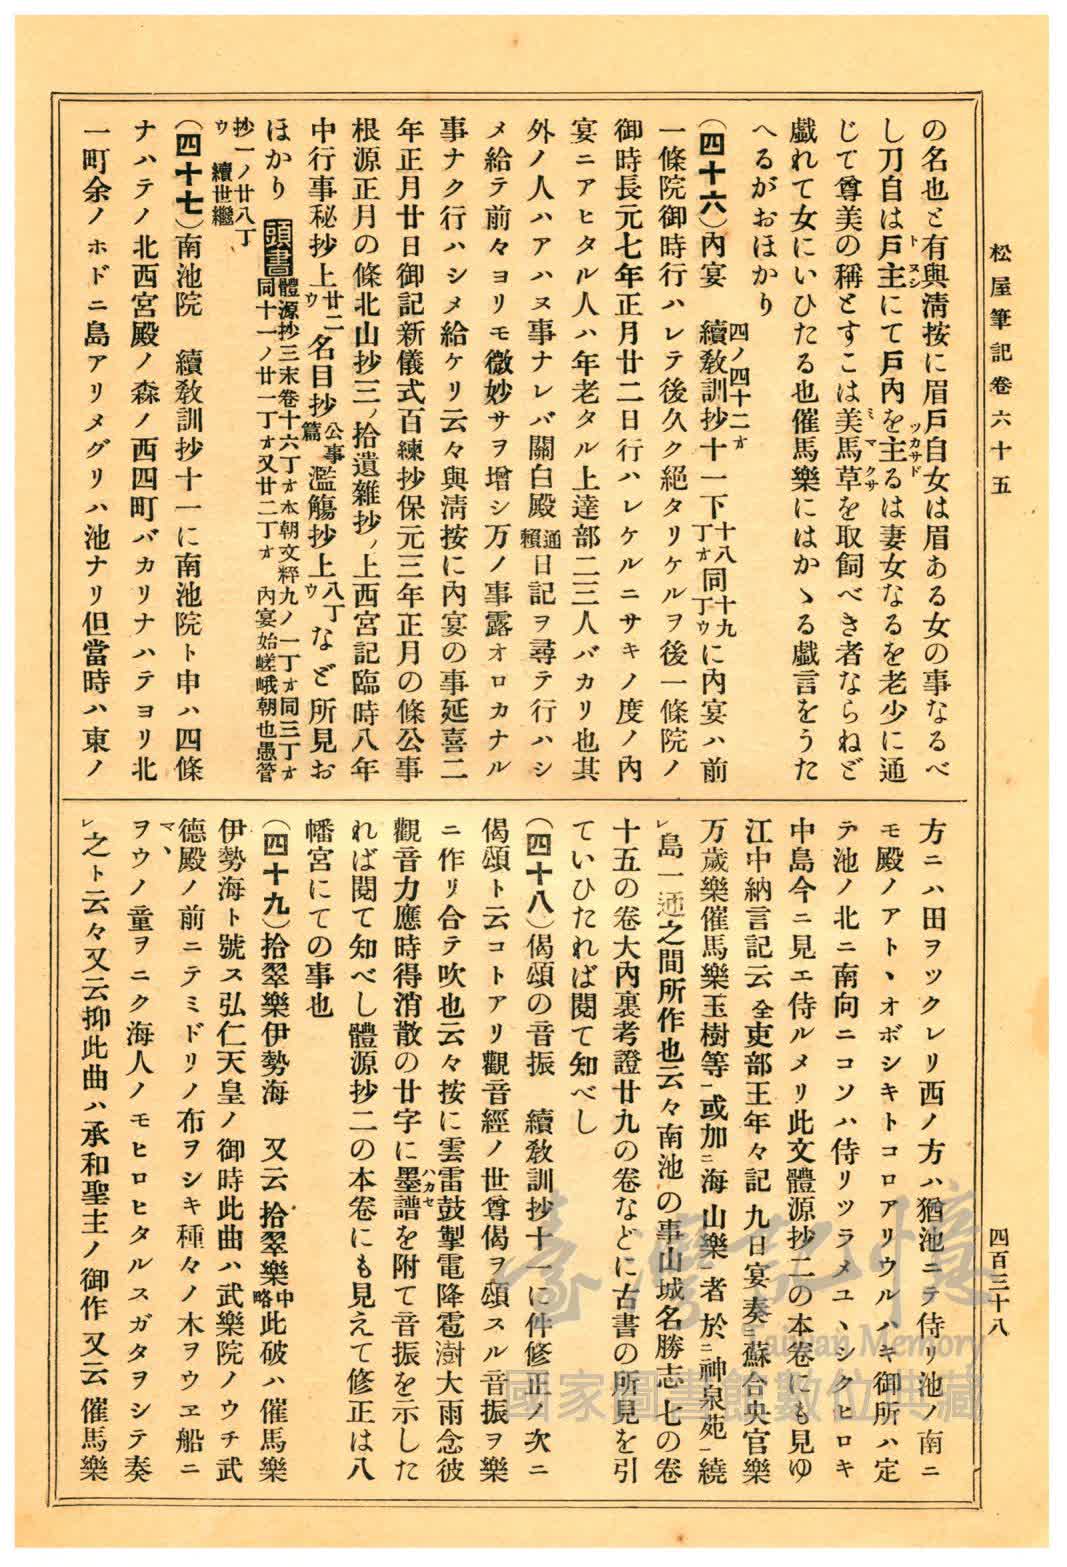 松屋筆記卷六十五
四百三十八
の名也と有與淸按に眉戶自女は眉ある女の事なるべ
し刀自は戶主にて戶內を主るは妻女なるを老少に通
トヌシ
ツカサド
じて尊美の稱とすこは美馬草を取飼べき者ならねど
ミマクサ
戲れて女にいひたる也催馬樂にはかゝる戲言をうた
へるがおほかり
四ノ四十二オ
(四十六)內宴 續敎訓抄十一下十八丁オ同十九丁ウに內宴ハ前
一條院御時行ハレテ後久ク絕タリケルヲ後一條院ノ
御時長元七年正月廿二日行ハレケルニサキノ度ノ內
宴ニアヒタル人ハ年老タル上達部二三人バカリ也其
外ノ人ハアハヌ事ナレバ關白殿賴通日記ヲ尋テ行ハシ
メ給テ前々ヨリモ微妙サヲ增シ万ノ事露オロカナル
事ナク行ハシメ給ケリ云々與淸按に內宴の事延喜二
年正月廿日御記新儀式百練抄保元三年正月の條公事
根源正月の條北山抄三ノ拾遺雜抄ノ上西宮記臨時八年
中行事秘抄上廿二ウ名目抄公事篇濫觴抄上八丁ウなど所見お
ほかり 頭書體源抄三末卷十六丁オ本朝文粹九ノ一丁オ同三丁オ
同十一ノ廿一丁オ又廿二丁オ 內宴始嵯峨朝也愚管
抄一ノ廿八丁
ウ 續世繼
(四十七)南池院 續敎訓抄十一に南池院ト申ハ四條
ナハテノ北西宮殿ノ森ノ西四町バカリナハテヨリ北
一町余ノホドニ島アリメグリハ池ナリ但當時ハ東ノ
方ニハ田ヲツクレリ西ノ方ハ猶池ニテ侍リ池ノ南ニ
モ殿ノアトヽオボシキトコロアリウルハキ御所ハ定
テ池ノ北ニ南向ニコソハ侍リツラメユヽシクヒロキ
中島今ニ見エ侍ルメリ此文體源抄二の本卷にも見ゆ
江中納言記云全吏部王年々記九日宴奏ニ蘇合央官樂
万歲樂催馬樂玉樹等一或加ニ海山樂一者於ニ神泉苑一繞
レ島一迊之間所作也云々南池の事山城名勝志七の卷
十五の卷大內裏考證廿九の卷などに古書の所見を引
ていひたれば閱て知べし
(四十八)偈頌の音振 續敎訓抄十一に件修正ノ次ニ
偈頌ト云コトアリ觀音經ノ世尊偈ヲ頌スル音振ヲ樂
ニ作リ合テ吹也云々按に雲雷鼓掣電降雹澍大雨念彼
觀音力應時得消散の廿字に墨譜を附て音振を示した
ハカセ
れば閱て知べし體源抄二の本卷にも見えて修正は八
幡宮にての事也
(四十九)拾翠樂伊勢海 又云拾翠樂中略此破ハ催馬樂
伊勢海ト號ス弘仁天皇ノ御時此曲ハ武樂院ノウチ武
德殿ノ前ニテミドリノ布ヲシキ種々ノ木ヲウヱ船ニ
マヽ
ヲウノ童ヲニク海人ノモヒロヒタルスガタヲシテ奏
レ之ト云々又云抑此曲ハ承和聖主ノ御作又云催馬樂
臺灣記憶
Taiwan Memory
國家圖書館數位典藏